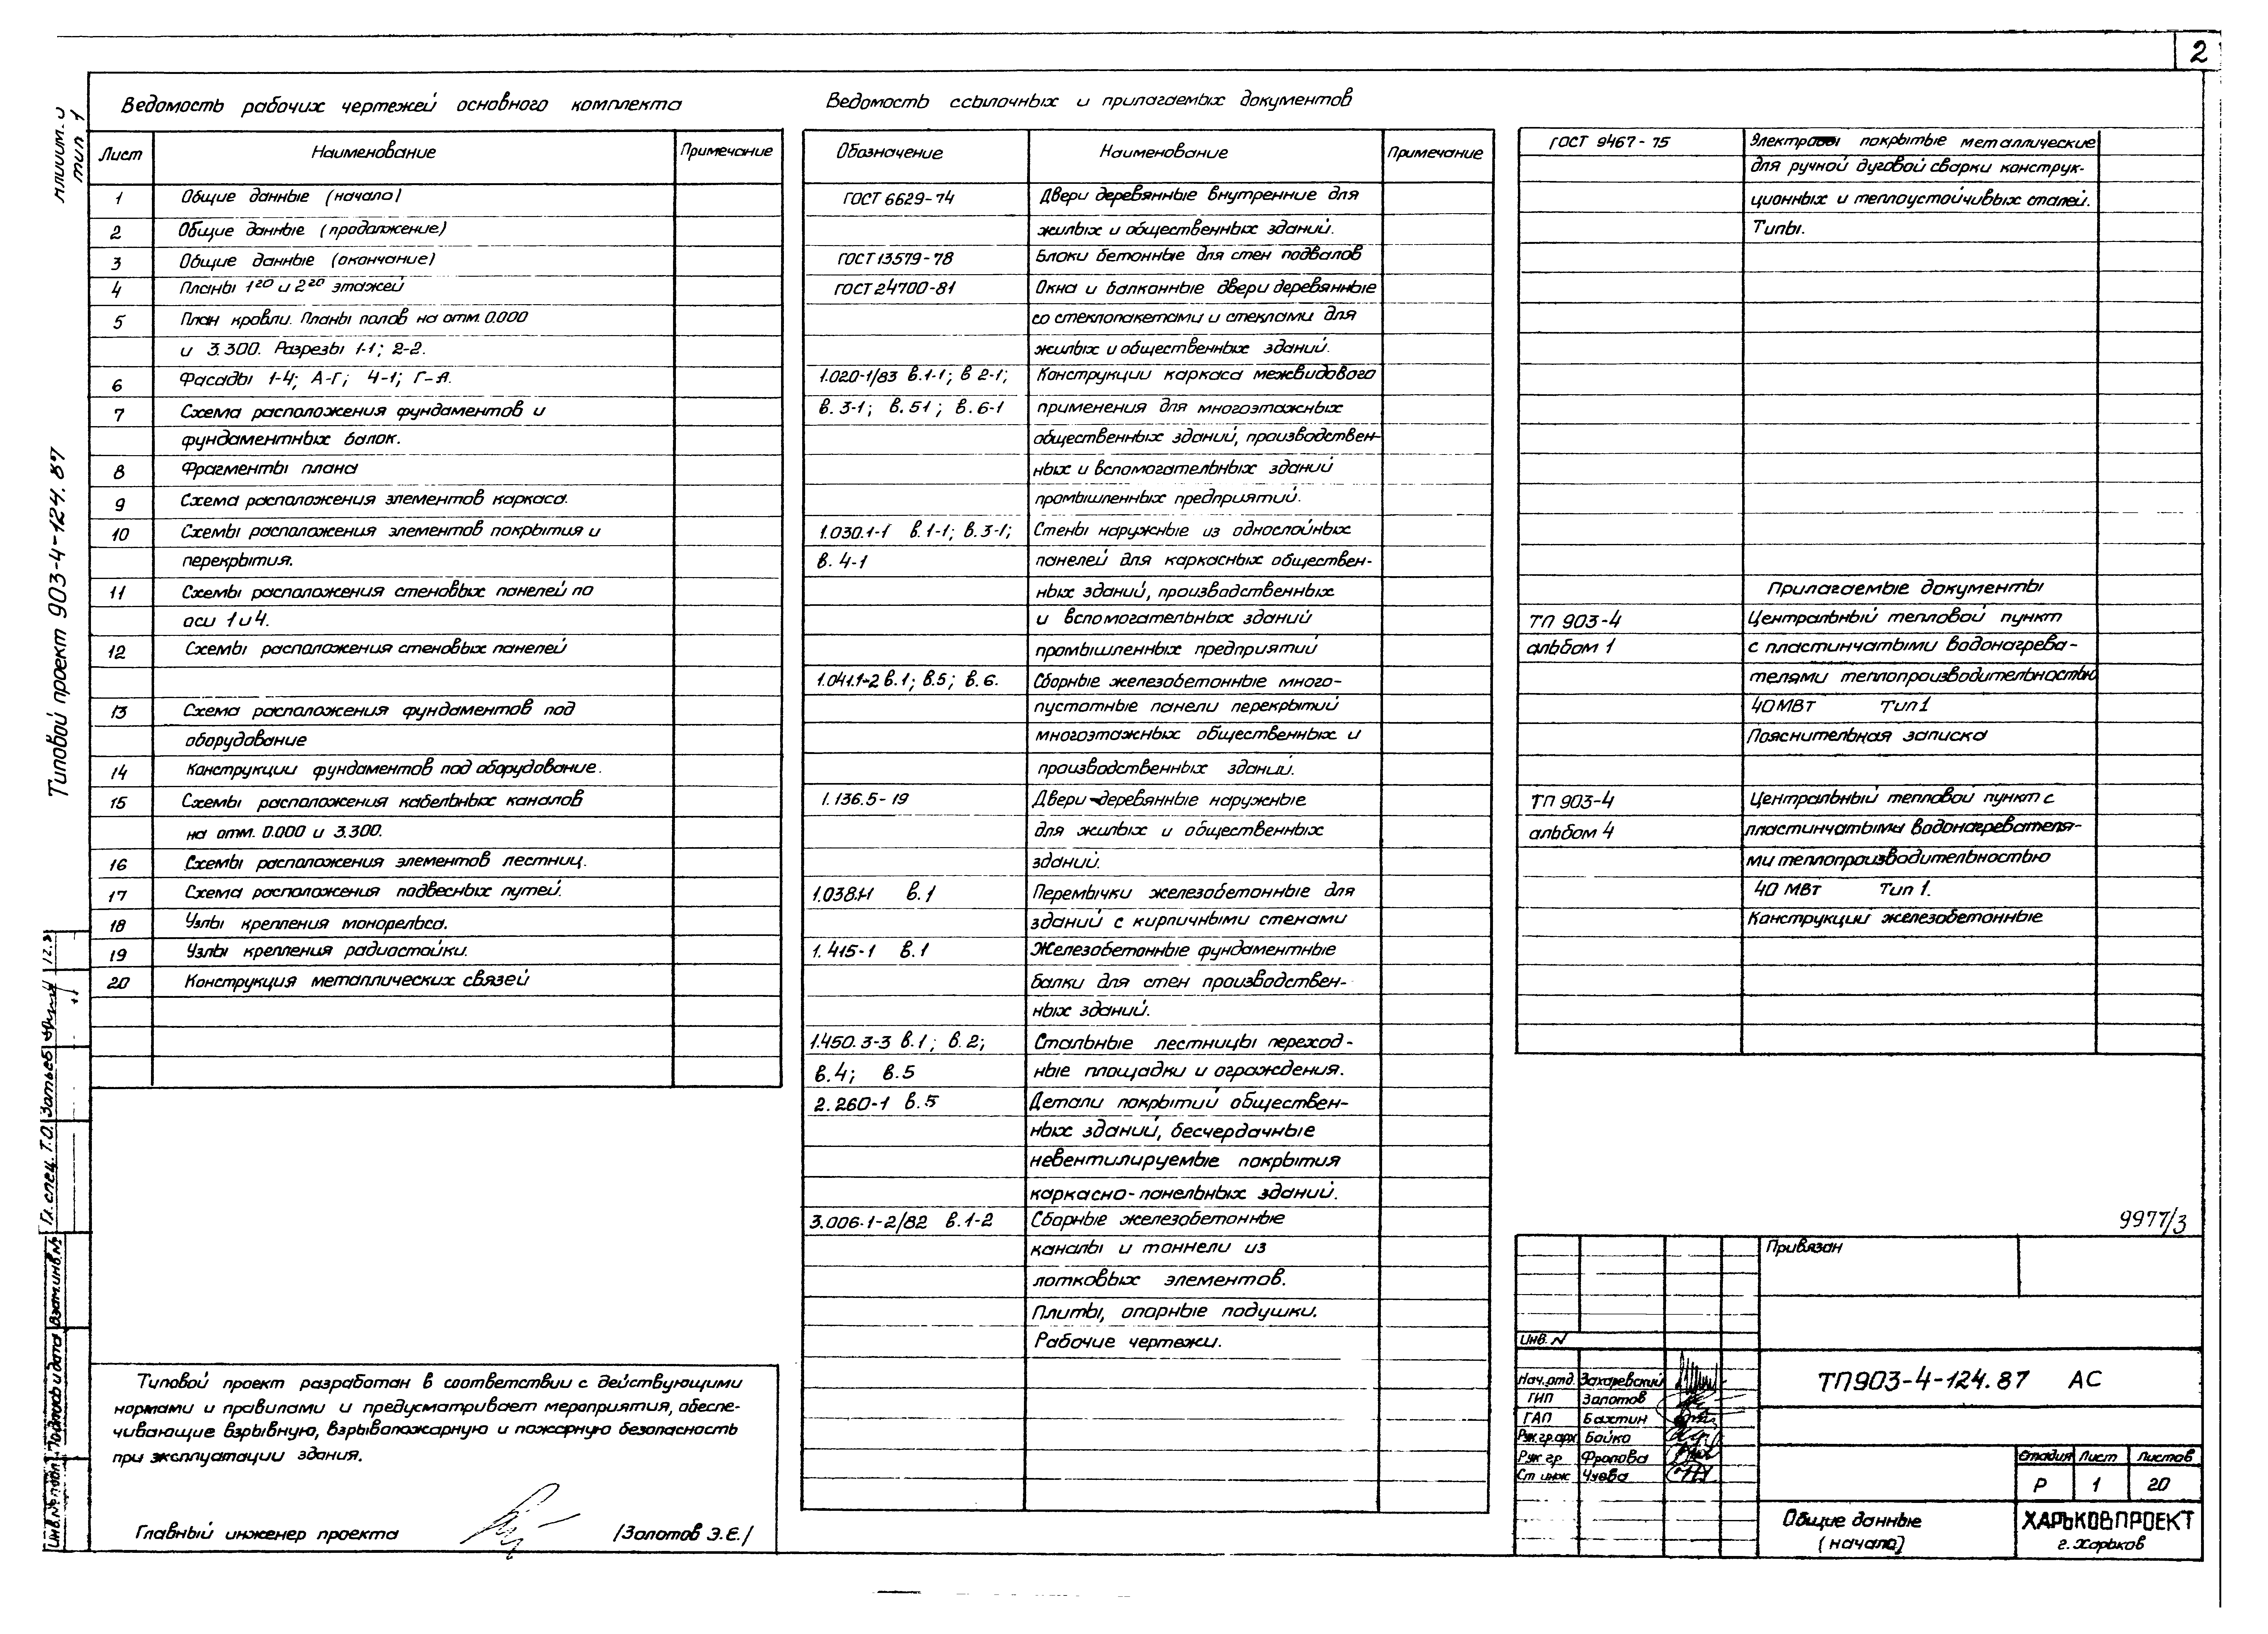 2
Ведомость рабочих чертежей основного комплекта
Лист Наименование Примечание
1 Общие данные (начало)
2 Общие данные (продолжение)
3 Общие данные (окончание)
4 Планы 1го и 2го этажей
5 План кровли. Планы полов на отм. 0.000
и 3.300. Разрезы 1-1; 2-2.
6 Фасады 1-4; А-Г; 4-1; Г-А.
7 Схема расположения фундаментов и
фундаментных балок.
8 Фрагменты плана
9 Схема расположения элементов каркаса.
10 Схемы расположения элементов покрытия и
перекрытия.
11 Схемы расположения стеновых панелей по
оси 1 и 4.
12 Схемы расположения стеновых панелей
13 Схема расположения фундаментов под
оборудование
14 Конструкции фундаментов под оборудование.
15 Схемы расположения кабельных каналов
на отм. 0.000 и 3.300.
16 Схемы расположения элементов лестниц.
17 Схема расположения подвесных путей.
18 Узлы крепления монорельса.
19 Узлы крепления радиостойки.
20 Конструкция металлических связей
Типовой проект разработан в соответствии с действующими
нормами и правилами и предусматривает мероприятия, обеспе-
чивающие взрывную, взрывопожарную и пожарную безопасность
при эксплуатации здания.
Главный инженер проекта /Золотов Э.Е./
Ведомость ссылочных и прилагаемых документов
Обозначение Наименование Примечание
ГОСТ 6629-74 Двери деревянные внутренние для
жилых и общественных зданий.
ГОСТ 13579-78 Блоки бетонные для стен подвалов
ГОСТ 24700-81 Окна и балконные двери деревянные
со стеклопакетами и стеклами для
жилых и общественных зданий.
1.020-1/83 в.1-1; в 2-1; Конструкции каркаса межвидового
в. 3-1; в. 51; в. 6-1 применения для многоэтажных
общественных зданий, производствен-
ных и вспомогательных зданий
промышленных предприятий.
1.030.1-1 в. 1-1; в. 3-1; Стены наружные из однослойных
в. 4-1 панелей для каркасных обществен-
ных зданий, производственных
и вспомогательных зданий
промышленных предприятий
1.041.1-2 в. 1; в.5; в. 6. Сборные железобетонные много-
пустотные панели перекрытий
многоэтажных общественных и
производственных зданий.
1.136.5-19 Двери деревянные наружные
для жилых и общественных
зданий.
1.038.1-1 в. 1 Перемычки железобетонные для
зданий с кирпичными стенами
1. 415-1 в. 1 Железобетонные фундаментные
балки для стен производствен-
ных зданий.
1.450.3-3 в. 1; в. 2; Стальные лестницы переход-
в.4; в.5 ные площадки и ограждения.
2.260-1 в.5 Детали покрытий обществен-
ных зданий, бесчердачные
невентилируемые покрытия
каркасно-панельных зданий.
3.006.1-2/82 в.1-2 Сборные железобетонные
каналы и тоннели из
лотковых элементов.
Плиты, опорные подушки.
Рабочие чертежи.
ГОСТ 9467-75 Электроды покрытые металлические
для ручной дуговой сварки конструк-
ционных и теплоустойчивых сталей.
Типы.
Прилагаемые документы
ТП 903-4 Центральный тепловой пункт
альбом 1 с пластинчатыми водонагрева-
телями теплопроизводительностью
40 МВт Тип 1
Пояснительная записка
ТП 903-4 Центральный тепловой пункт с
альбом 4 пластинчатыми водонагревателя-
ми теплопроизводительностью
40 МВт Тип 1.
Конструкции железобетонные
9977/3
Привязан
Инв. N
Нач.отд. Захаревский
ГИП Золотов
ГАП Бахтин
Рук.гр.арх Бойко
Рук гр Фролова
Ст инж Чуева
ТП903-4-124.87 АС
Стадия Лист Листов
Р 1 20
Общие данные
(начало)
ХАРЬКОВПРОЕКТ
г. Харьков
тип 1
Типовой проект 903-4-124.87
Гл. спец. Т.О. Затьев
Взам.инв.№
Подпись и дата
Инв.№ подл.